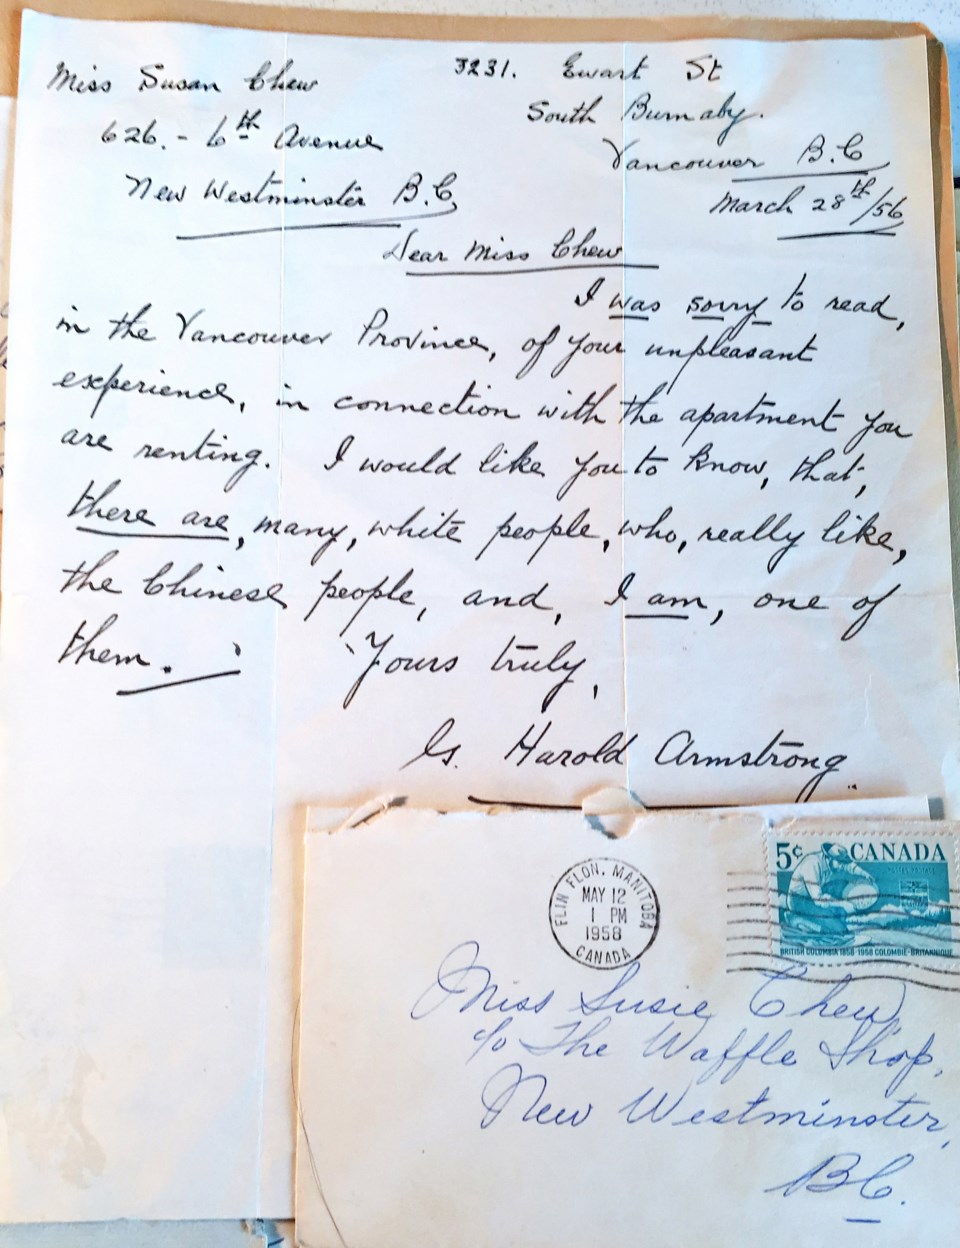 Miss Susan Chew
626. - 6th Avenue
New Westminster B.C.
3231. Ewart St
South Burnaby.
Vancouver B.C
March 28th/56
Dear Miss Chew
I was sorry to read,
in the Vancouver Province, of your unpleasant
experience, in connection with the apartment you
are renting. I would like you to know, that,
there are, many, white people, who, really like,
the Chinese people, and, I am, one of
them.
Yours truly,
G. Harold Armstrong
FLIN FLON, MANITOBA
MAY 12
1 PM
1958
CANADA
5¢ CANADA
BRITISH COLUMBIA 1858-1958 COLOMBIE-BRITANNIQUE
Miss Susie Chew
c/o The Waffle Shop,
New Westminster,
BC.